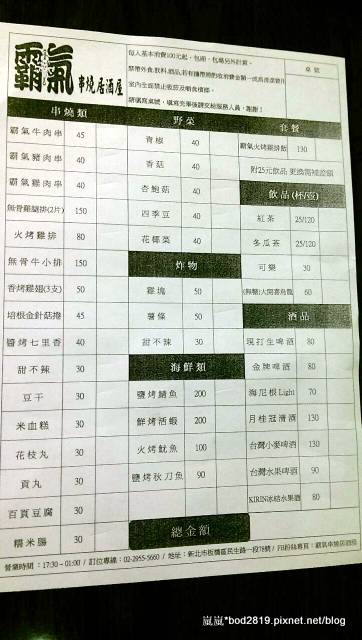 霸氣 串燒居酒屋
每人基本消費100元起，包廂、包場另外計算。
室內全面禁止吸菸及嚼食檳榔。
桌號
串燒類
霸氣牛肉串 45
霸氣豬肉串 40
霸氣雞肉串 40
無骨雞腿排(2片) 150
火烤雞排 80
無骨牛小排 150
香烤雞翅(3支) 50
培根金針菇捲 45
醬烤七里香 40
甜不辣 30
豆干 30
米血糕 30
花枝丸 30
貢丸 30
百頁豆腐 30
糯米腸 30
野菜
青椒 40
香菇 40
杏鮑菇 40
四季豆 40
花椰菜 40
炸物
雞塊 50
薯條 50
甜不辣 30
海鮮類
鹽烤鯖魚 200
鮮烤活蝦 200
火烤魷魚 100
鹽烤秋刀魚 90
總金額
套餐
霸氣火烤雞排飯 130
附25元飲品 更換需補差額
飲品(杯/壺)
紅茶 25/120
冬瓜茶 25/120
可樂 30
(無糖)大開喜烏龍 60
酒品
現打生啤酒 80
金牌啤酒 80
海尼根Light 70
月桂冠清酒 130
台灣小麥啤酒 130
台灣水果啤酒 90
KIRIN冰結水果酒 80
營業時間：17:30－01:00 / 訂位專線：02-2955-5660 / 地址：新北市板橋區民生路一段78號 / FB粉絲專頁：霸氣串燒居酒屋
嵐嵐*bod2819.pixnet.net/blog